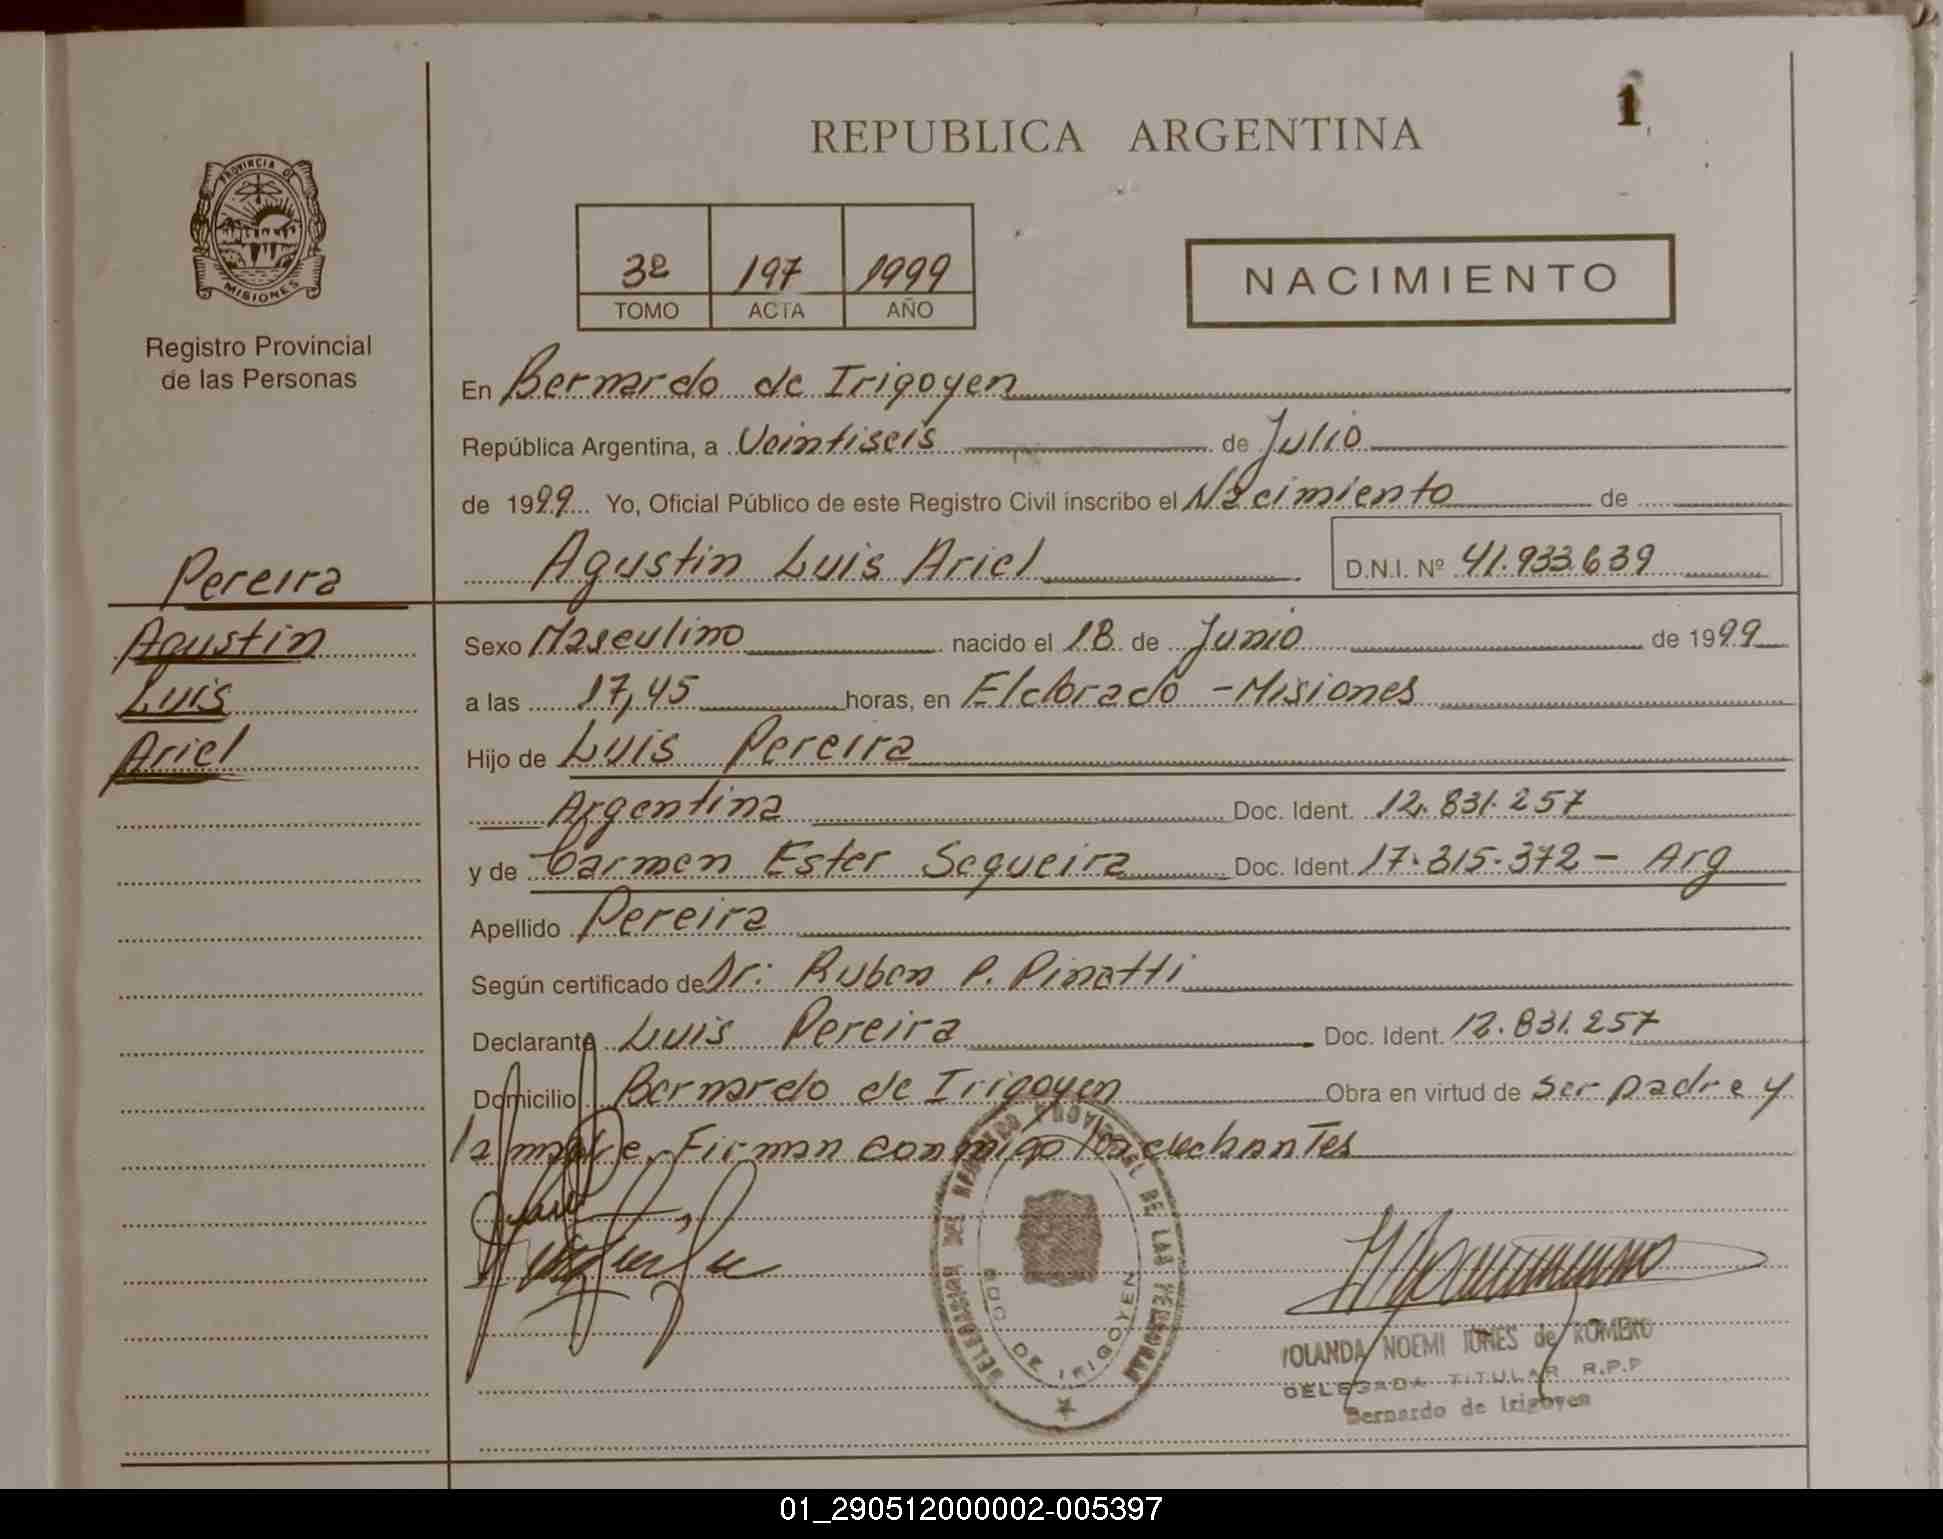 1
REPUBLICA ARGENTINA
PROVINCIA DE
MISIONES
Registro Provincial
de las Personas
3º 197 1999
TOMO ACTA AÑO
NACIMIENTO
En Bernardo de Irigoyen
República Argentina, a Veintiseis de Julio
de 1999 Yo, Oficial Público de este Registro Civil inscribo el Nacimiento de
Agustin Luis Ariel D.N.I. Nº 41.933.639
Pereira
Agustin
Luis
Ariel
Sexo Masculino nacido el 18 de Junio de 1999
a las 17,45 horas, en Eldorado - Misiones
Hijo de Luis Pereira
Argentina Doc. Ident. 12.831.257
y de Carmen Ester Sequeira Doc. Ident. 17.315.372 - Arg
Apellido Pereira
Según certificado de Dr: Ruben P. Pinatti
Declarante Luis Pereira Doc. Ident. 12.831.257
Domicilio Bernardo de Irigoyen Obra en virtud de ser padre y
la madre. Firman conmigo
DELEGACION DEL REGISTRO PROVINCIAL DE LAS PERSONAS
BDO DE IRIGOYEN
YOLANDA NOEMI de ROMERO
DELEGADA TITULAR R.P.P
Bernardo de Irigoyen
01_290512000002-005397